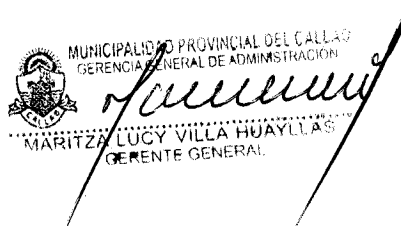 MUNICIPALIDAD PROVINCIAL DEL CALLAO
GERENCIA GENERAL DE ADMINISTRACIÓN
CALLAO
MARITZA LUCY VILLA HUAYLLAS
GERENTE GENERAL